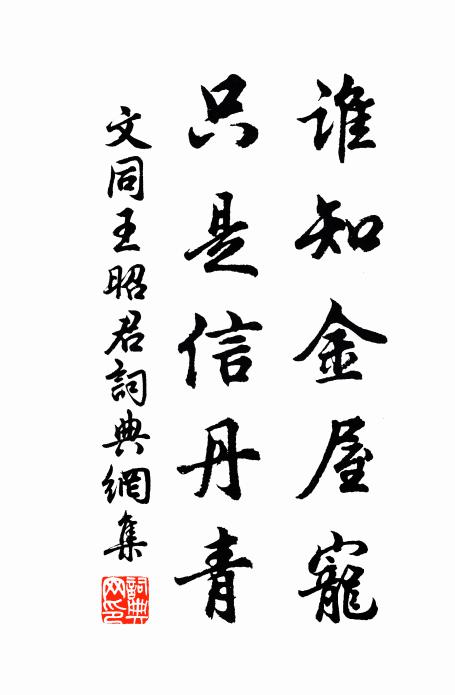 誰知金屋寵
只是信丹青
文同王昭君詞典網集
詞典網印